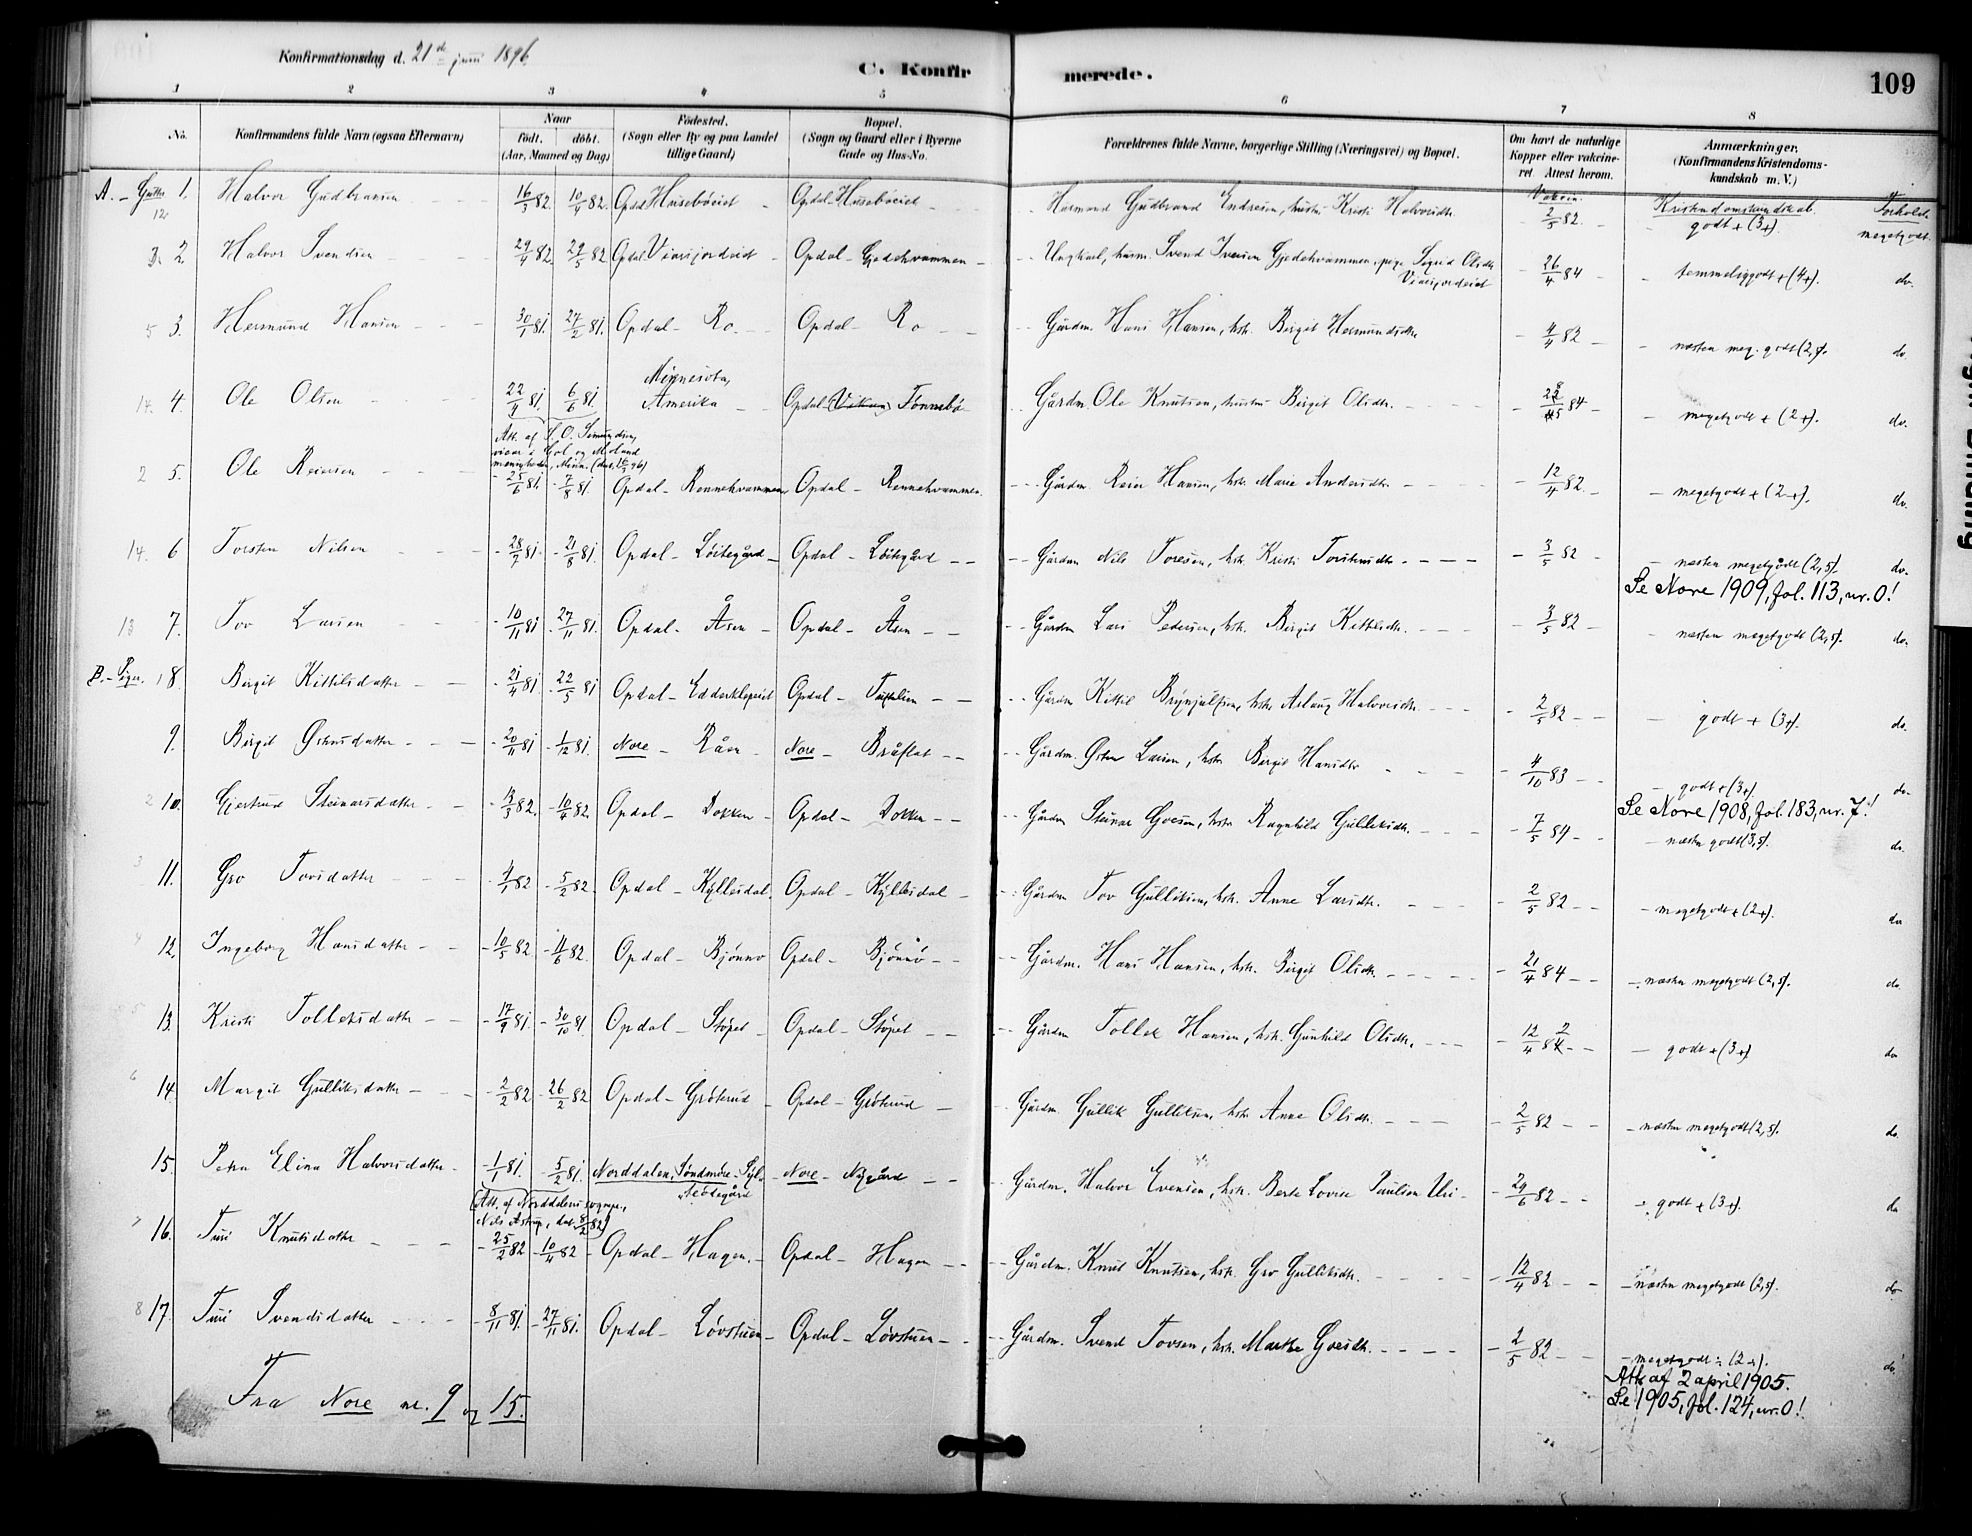 Konfirmationsdag d. 21de juni 1896.
C. Konfirmerede.
109
1 2 3 4 5 6 7 8
No. Konfirmandens fulde Navn (ogsaa Efternavn) Naar født. døbt. (Aar, Maaned og Dag) Fødested. (Sogn eller By og paa Landet tillige Gaard) Bopæl. (Sogn og Gaard eller i Byerne Gade og Hus-No. Forældrenes fulde Navne, borgerlige Stilling (Næringsvei) og Bopæl. Om havt de naturlige Kopper eller vakcineret. Attest herom. Anmærkninger. (Konfirmandens Kristendomskundskab m. V.)
Vakcin. Kristendomskundskab. Forhold
A. - Gutter 1. Halvor Gudbransen 16/3 82. 10/4 82. Opdal Husebøeiet Opdal Husebøeiet Gudbrand Endresen, hustru Kristi Halvorsdtr. 2/5 82. godt + (3+). megetgodt.
2. Halvor Svendsen 29/4 82. 29/5 82 Opdal Opdal - Gjedehvammen Ungkarl, Svend Iversen Gjedehvammen, pige Sigrid Olsdtr. 26/4 84 temmeliggodt + (4+). do.
3. Hermund Hansen 30/1 81. 27/2 81. Opdal - Ro Opdal - Ro Gårdm. Hans Hansen, hstr. Birgit Hermundsdtr. 4/4 82 næsten meg. godt (2,5). do.
4. Ole Olsen 22/4 81. 6/6 81. Minnesota, Amerika Opdal Tønnebø Gårdm. Ole Knutsen, hustru Birgit Olsdtr. 84 megetgodt + (2+). do.
5. Ole Reiersen 25/6 81. 7/8 81. Opdal - Rennehvammen Opdal - Rennehvammen. Gårdm. Reier Hansen, hstr. Marie Andersdtr. 12/4 82. megetgodt + (2+). do.
6 Torsten Nilsen 28/7 81. 21/8 81. Opdal - Løitegård Opdal - Løitegård Gårdm Nils Toresen, hstr. Kristi Torstensdtr. 3/5 82 næsten megetgodt (2,5). do.
Se Nore 1909, fol. 113, nr. 0!
7. Tov Larsen 10/11 81 27/11 81. Opdal - Åsen Opdal - Åsen Gårdm Lars Pedersen, hstr. Birgit Kittilsdtr. 3/5 82 næsten megetgodt (2,5). do.
B. - Piger. 8. Birgit Kittilsdatter 21/4 81 22/5 81 Opdal - Edderklepeiet Opdal - Gårdm Kittil Brynjulfsen, hstr Aslaug Halvorsdtr. 2/5 82 godt + (3+). do.
9. Birgit Østensdatter 20/11 81 1/12 81. Nore - Råen Nore - Bråflat Gårdm. Østen Larsen, hstr Birgit Hansdtr 4/10 83 godt + (3+). do.
Se Nore 1908, fol. 183, nr. 7!
10. Gjertrud Steinarsdatter 13/3 82. 10/4 82. Opdal - Dokken Opdal - Dokken Gårdm Steinar Goesen, hstr Ragnhild Gulliksdtr. 7/5 84 næsten godt (3,5). do.
11. Gro Tovsdatter 4/1 82 5/2 82. Opdal - Kyllesdal. Opdal - Kyllesdal Gårdm Tov Gulliksen, hstr. Anne Larsdtr. 2/5 82 megetgodt + (2+). do
12. Ingeborg Hansdatter 10/5 82 11/6 82. Opdal - Bjønnø Opdal - Bjønnø Gårdm. Hans Hansen, hstr. Birgit Olsdtr. 21/4 84 næsten megetgodt (2,5). do.
13. Kristi Tolleksdatter 17/9 81. 30/10 81 Opdal - Støpet Opdal - Støpet Gårdm Tollek Hansen, hstr. Gunhild Olsdtr. 12/4 82 godt + (3+) do
14. Margit Gulliksdatter 2/2 82 26/2 82 Opdal - Grøterud Opdal - Grøterud Gårdm. Gullik Gulliksen, hstr Anne Olsdtr. 2/5 82 næsten megetgodt (2,5). do.
15. Petra Elina Halvorsdatter 1/1 81. 5/2 81. Norddalen, Søndmøre Nore - Nygård Gårdm. Halvor Evensen, hstr. Berte Lovise Paulsen Uri 29/6 82 godt + (3+). do
(Att. af Norddalens sognepr., Nils Astrup, dat. 8/2 82)
16. Turi Knutsdatter 25/2 82 10/4 82 Opdal - Hagen. Opdal - Hagen Gårdm. Knut Knutsen, hstr. Gro Gulliksdtr. 12/4 82 næsten megetgodt (2,5). do
17. Turi Svendsdatter 8/11 81. 27/11 81. Opdal - Løvstuen Opdal - Løvstuen Gårdm. Svend Tovsen, hstr. Marthe Goesdtr. 2/5 82 megetgodt (2+). do.
Att. af 2 april 1905.
Se 1905, fol. 124, nr. 0!
Fra Nore nr. 9 og 15.